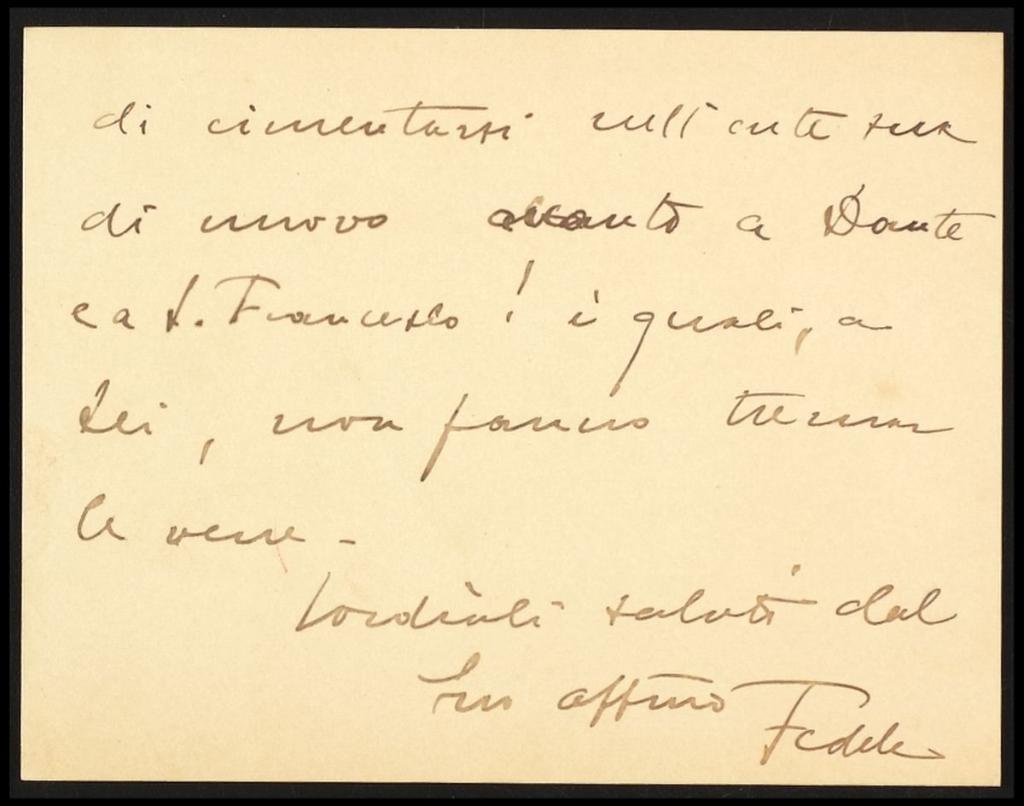 di cimentarsi nell'arte sua
di nuovo avanti a Dante
e a S. Francesco! i quali, a
Lei, non fanno tremar
le vene -
Cordiali saluti dal
Suo affmo Fedele